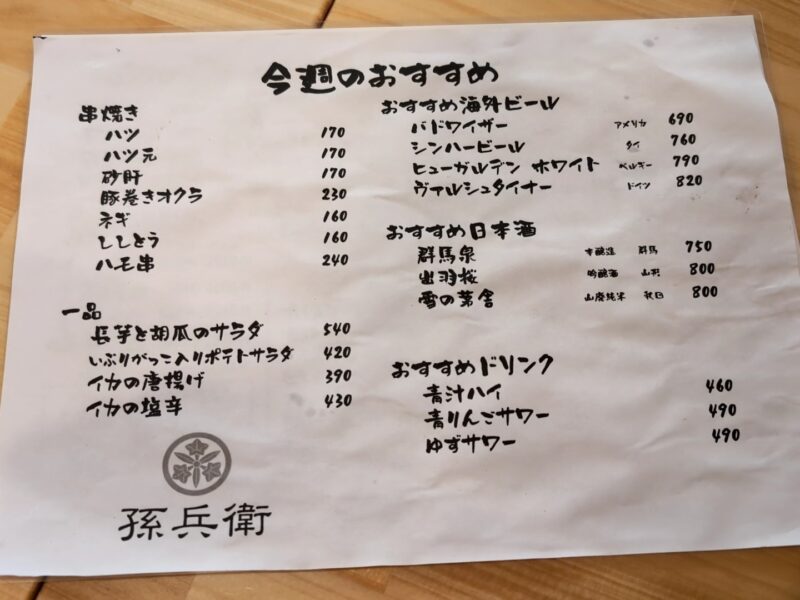 今週のおすすめ
串焼き
ハツ 170
ハツ元 170
砂肝 170
豚巻きオクラ 230
ネギ 160
ししとう 160
ハモ串 240
一品
長芋と胡瓜のサラダ 540
いぶりがっこ入りポテトサラダ 420
イカの唐揚げ 390
イカの塩辛 430
孫兵衛
おすすめ海外ビール
バドワイザー アメリカ 690
シンハービール タイ 760
ヒューガルデン ホワイト ベルギー 790
ヴァルシュタイナー ドイツ 820
おすすめ日本酒
群馬泉 本醸造 群馬 750
出羽桜 吟醸酒 山形 800
雪の茅舎 山廃純米 秋田 800
おすすめドリンク
青汁ハイ 460
青りんごサワー 490
ゆずサワー 490